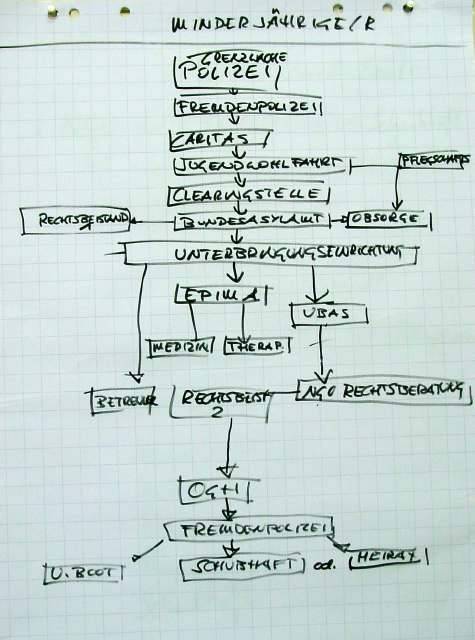 MINDERJÄHRIGE/R
GRENZWACHE
POLIZEI
FREMDENPOLIZEI
CARITAS
JUGENDWOHLFAHRT
PFLEGSCHAFTS
CLEARINGSTELLE
RECHTSBEISTAND
BUNDESASYLAMT
OBSORGE
UNTERBRINGUNGSEINRICHTUNG
EPIMA
UBAS
MEDIZIN
THERAP.
BETREUER
RECHTSBEIST
2
NGO RECHTSBERATUNG
FREMDENPOLIZEI
U.BOOT
SCHUBHAFT
od.
HEIRAT